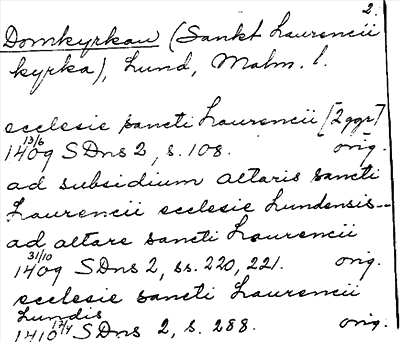 2.
Domkyrkan (Sankt Laurencii
kyrka), Lund, Malm. l.
ecclesie sancti Laurencii [2 ggr]
1409 13/6 SDns 2, s. 108. orig.
ad subsidium altaris sancti
Laurencii ecclesie Lundensis --
ad altare sancti Laurencii
1409 31/10 SDns 2, ss. 220, 221. orig.
ecclesie sancti Laurencii
Lundis
1410 17/4 SDns 2, s. 288. orig.